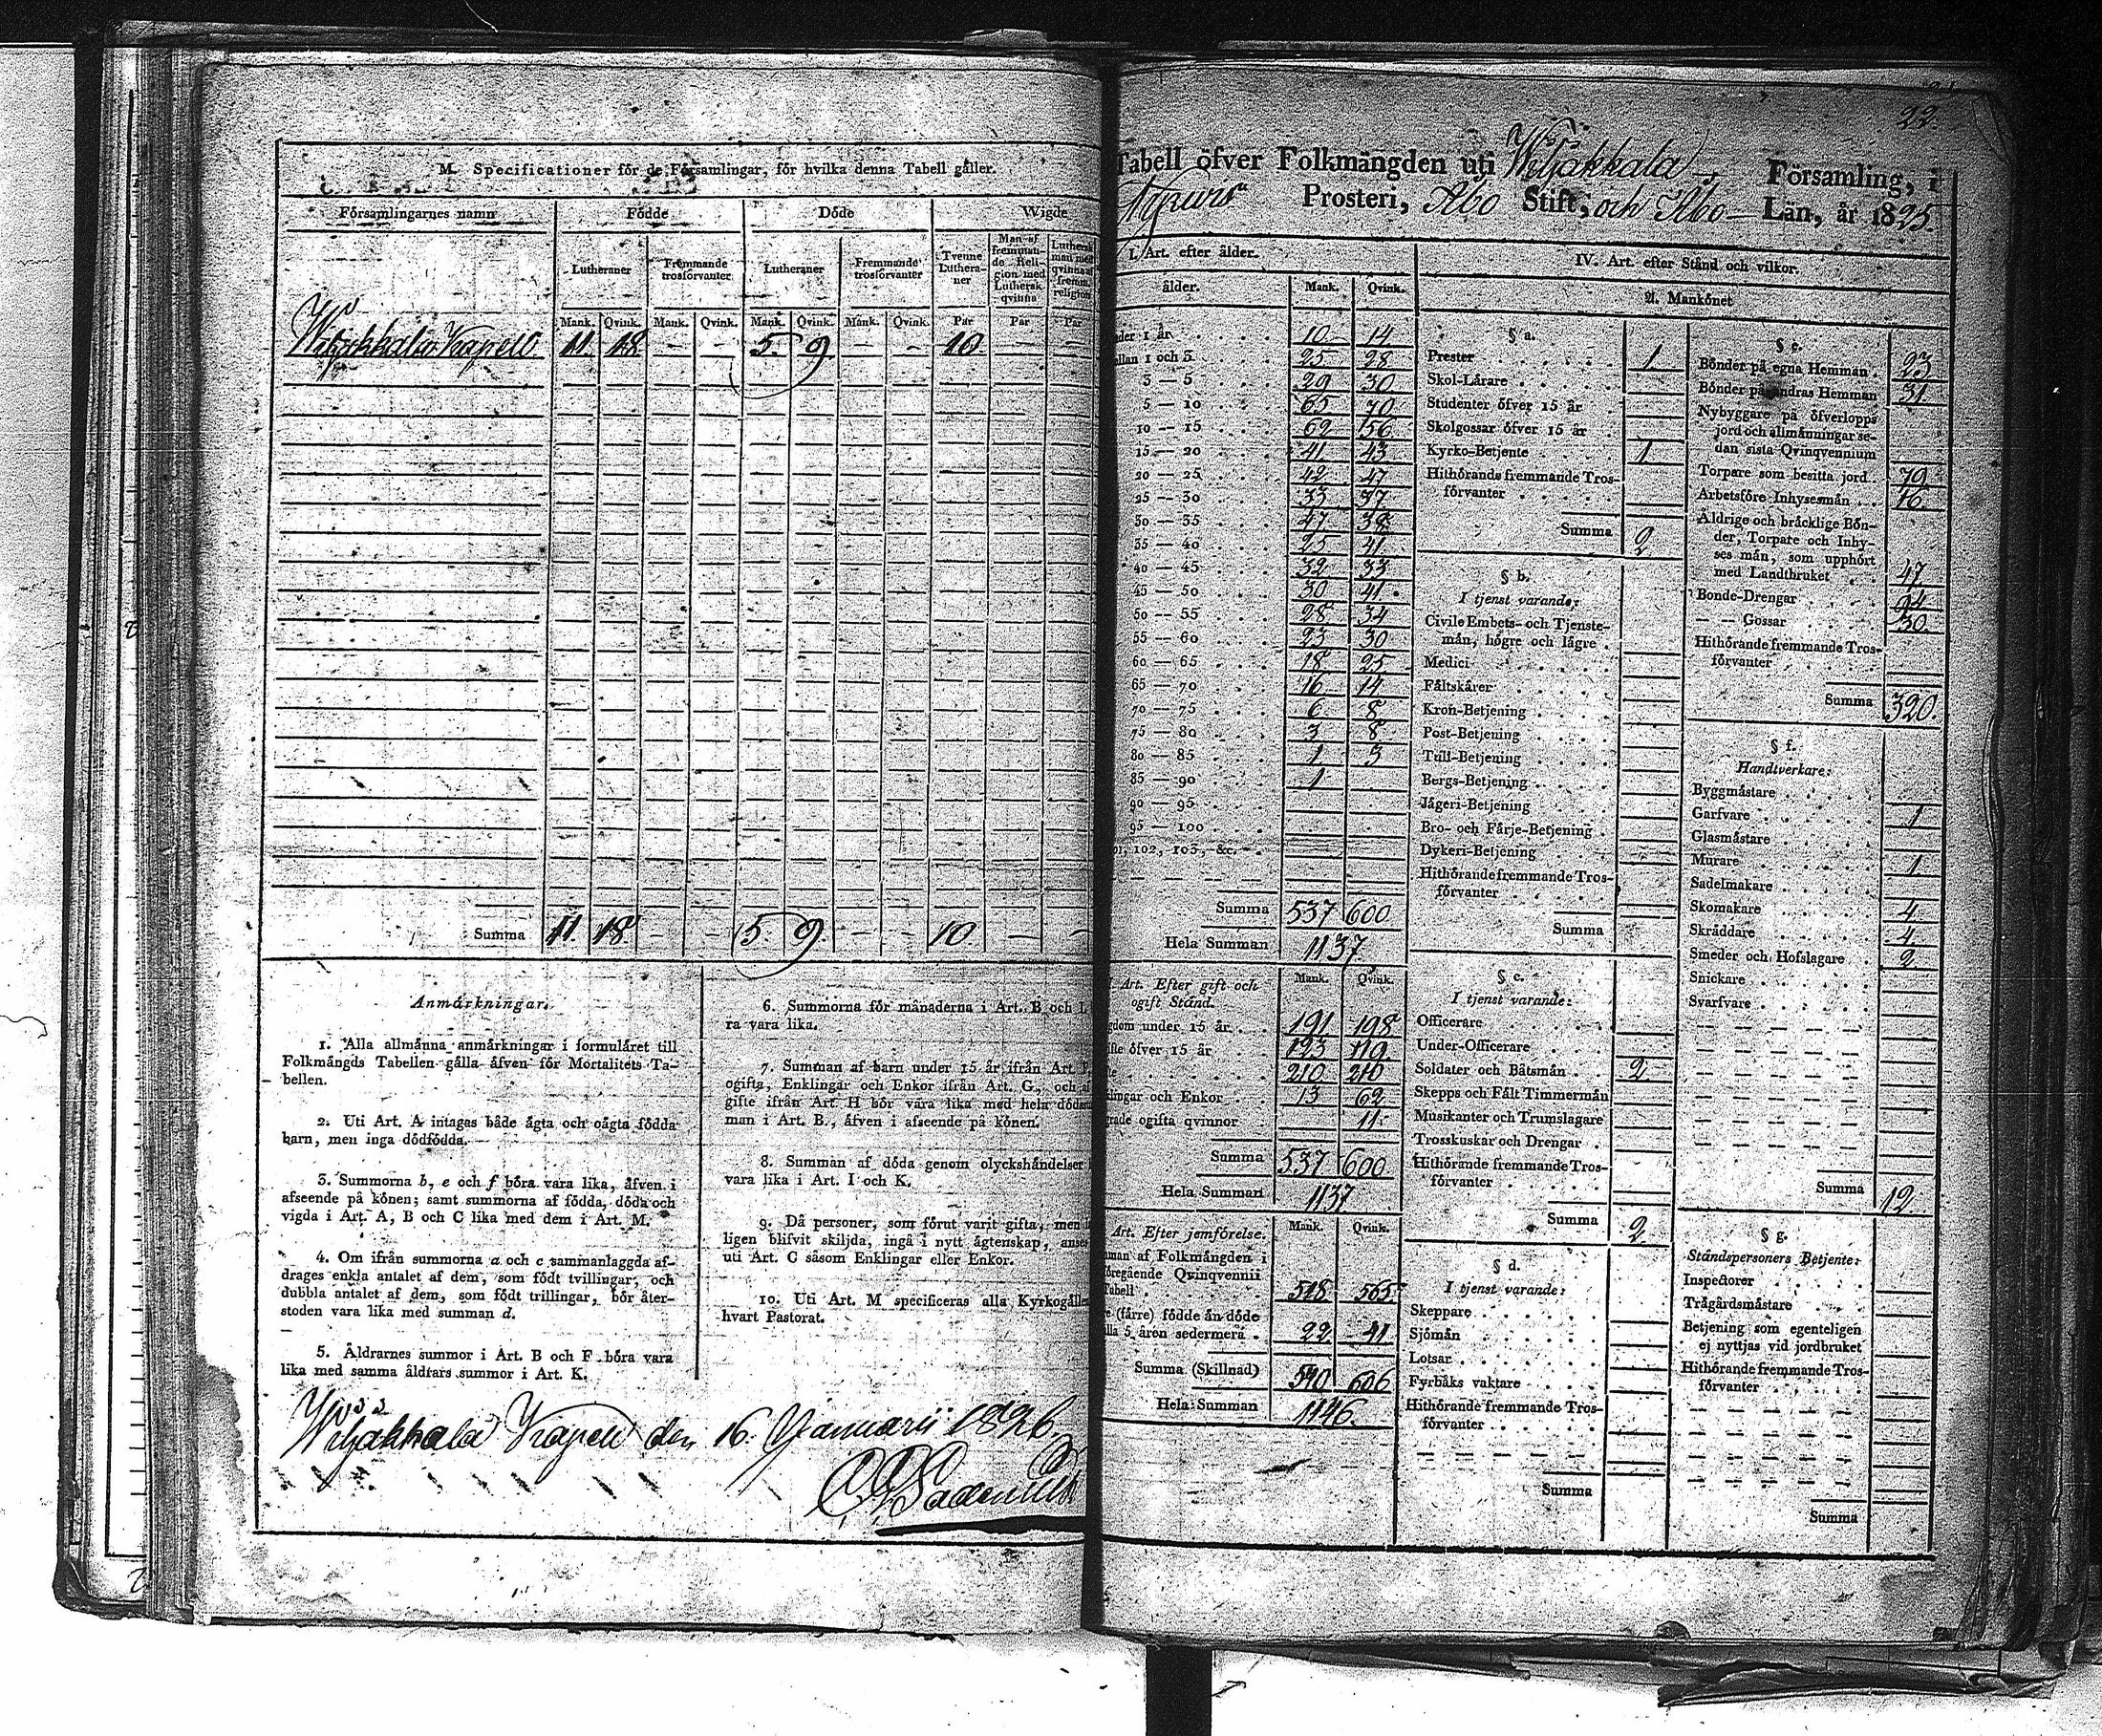 M. Specificationer för de Församlingar, för hvilka denna Tabell gäller.
Församlingarnes namn Födde Döde Wigde
Lutheraner Fremmande trosförvanter Lutheraner Fremmande trosförvanter Tvenne Lutheraner Man af fremmande Religion med Luthersk qvinna Luthersk man med qvinna af fremm. religion
Mank. Qvink. Mank. Qvink. Mank. Qvink. Mank. Qvink. Par Par Par
Wiljakkala Kapell 11. 18. — — 5. 9. — — 10. — —
Summa 11. 18. — — 5. 9. — — 10. — —
Anmärkningar.
1. Alla allmänna anmärkningar i formuläret till
Folkmängds Tabellen gälla äfven för Mortalitets Ta-
bellen.
2. Uti Art. A intagas både ägta och oägta födda
barn, men inga dödfödda.
3. Summorna b, e och f böra vara lika, äfven i
afseende på könen; samt summorna af födda, döda och
vigda i Art. A, B och C lika med dem i Art. M.
4. Om ifrån summorna a och c sammanlaggda af-
drages enkla antalet af dem, som födt tvillingar, och
dubbla antalet af dem, som födt trillingar, bör åter-
stoden vara lika med summan d.
5. Åldrarnes summor i Art. B och F böra vara
lika med samma åldrars summor i Art. K.
6. Summorna för månaderna i Art. B och L
ra vara lika.
7. Summan af barn under 15 år ifrån Art.
ogifta, Enklingar och Enkor ifrån Art. G, och af
gifte ifrån Art. H bör vara lika med hela döda
man i Art. B., äfven i afseende på könen.
8. Summan af döda genom olyckshändelser
vara lika i Art. I och K.
9. Då personer, som förut varit gifta, men
ligen blifvit skiljda, ingå i nytt ägtenskap, anse
uti Art. C såsom Enklingar eller Enkor.
10. Uti Art. M specificeras alla Kyrkogälle
hvart Pastorat.
Wiljakkala Kapell den 16. Januarii 1826.
22.
Tabell öfver Folkmängden uti Wiljakkala Församling, i
Prosteri, Åbo Stift, och Åbo Län, år 1825.
I. Art. efter ålder.
ålder. Mank. Qvink.
nder 1 år 10 14
ellan 1 och 3 25 28
3 — 5 29 30
5 — 10 65 70
10 — 15 62 56
15 — 20 41 43
20 — 25 42 47
25 — 30 33 37
30 — 35 47 38
35 — 40 25 41
40 — 45 32 33
45 — 50 30 41
50 — 55 28 34
55 — 60 23 30
60 — 65 18 25
65 — 70 16 14
70 — 75 6 8
75 — 80 3 8
80 — 85 1 3
85 — 90 1
90 — 95
95 — 100
101, 102, 103, &c.
Summa 537 600
Hela Summan 1137
Art. Efter gift och
ogift Stånd. Mank. Qvink.
gdom under 15 år 191 198
ifte öfver 15 år 123 119
te 210 210
lingar och Enkor 13 62
rade ogifta qvinnor 11
Summa 537 600
Hela Summan 1137
Art. Efter jemförelse. Mank. Qvink.
man af Folkmängden i
öregående Qvinqvennii
Tabell 518 565
re (färre) födde än döde
lla 5 åren sedermera 22 41
Summa (Skillnad) 540 606
Hela Summan 1146
IV. Art. efter Stånd och vilkor.
A. Mankönet
§ a.
Prester 1
Skol-Lärare
Studenter öfver 15 år
Skolgossar öfver 15 år
Kyrko-Betjente 1
Hithörande fremmande Tros-
förvanter
Summa 2
§ b.
I tjenst varande:
Civile Embets- och Tjenste-
män, högre och lägre
Medici
Fältskärer
Kron-Betjening
Post-Betjening
Tull-Betjening
Bergs-Betjening
Jägeri-Betjening
Bro- och Färje-Betjening
Dykeri-Betjening
Hithörande fremmande Tros-
förvanter
Summa
§ c.
I tjenst varande:
Officerare
Under-Officerare
Soldater och Båtsmän 2
Skepps och Fält Timmermän
Musikanter och Trumslagare
Trosskuskar och Drengar
Hithörande fremmande Tros-
förvanter
Summa 2
§ d.
I tjenst varande:
Skeppare
Sjömän
Lotsar
Fyrbåks vaktare
Hithörande fremmande Tros-
förvanter
Summa
§ e.
Bönder på egna Hemman 23
Bönder på andras Hemman 31
Nybyggare på öfverlopps
jord och allmänningar se-
dan sista Qvinqvennium
Torpare som besitta jord 79
Arbetsföre Inhysesmän 16
Åldrige och bräcklige Bön-
der, Torpare och Inhy-
ses män, som upphört
med Landtbruket 47
Bonde-Drengar 94
— — Gossar 30
Hithörande fremmande Tros-
förvanter
Summa 320.
§ f.
Handtverkare:
Byggmästare
Garfvare 1
Glasmästare
Murare 1
Sadelmakare
Skomakare 4
Skräddare 4
Smeder och Hofslagare 2
Snickare
Svarfvare
Summa 12
§ g.
Ståndspersoners Betjente:
Inspectorer
Trägårdsmästare
Betjening som egenteligen
ej nyttjas vid jordbruket
Hithörande fremmande Tros-
förvanter
Summa